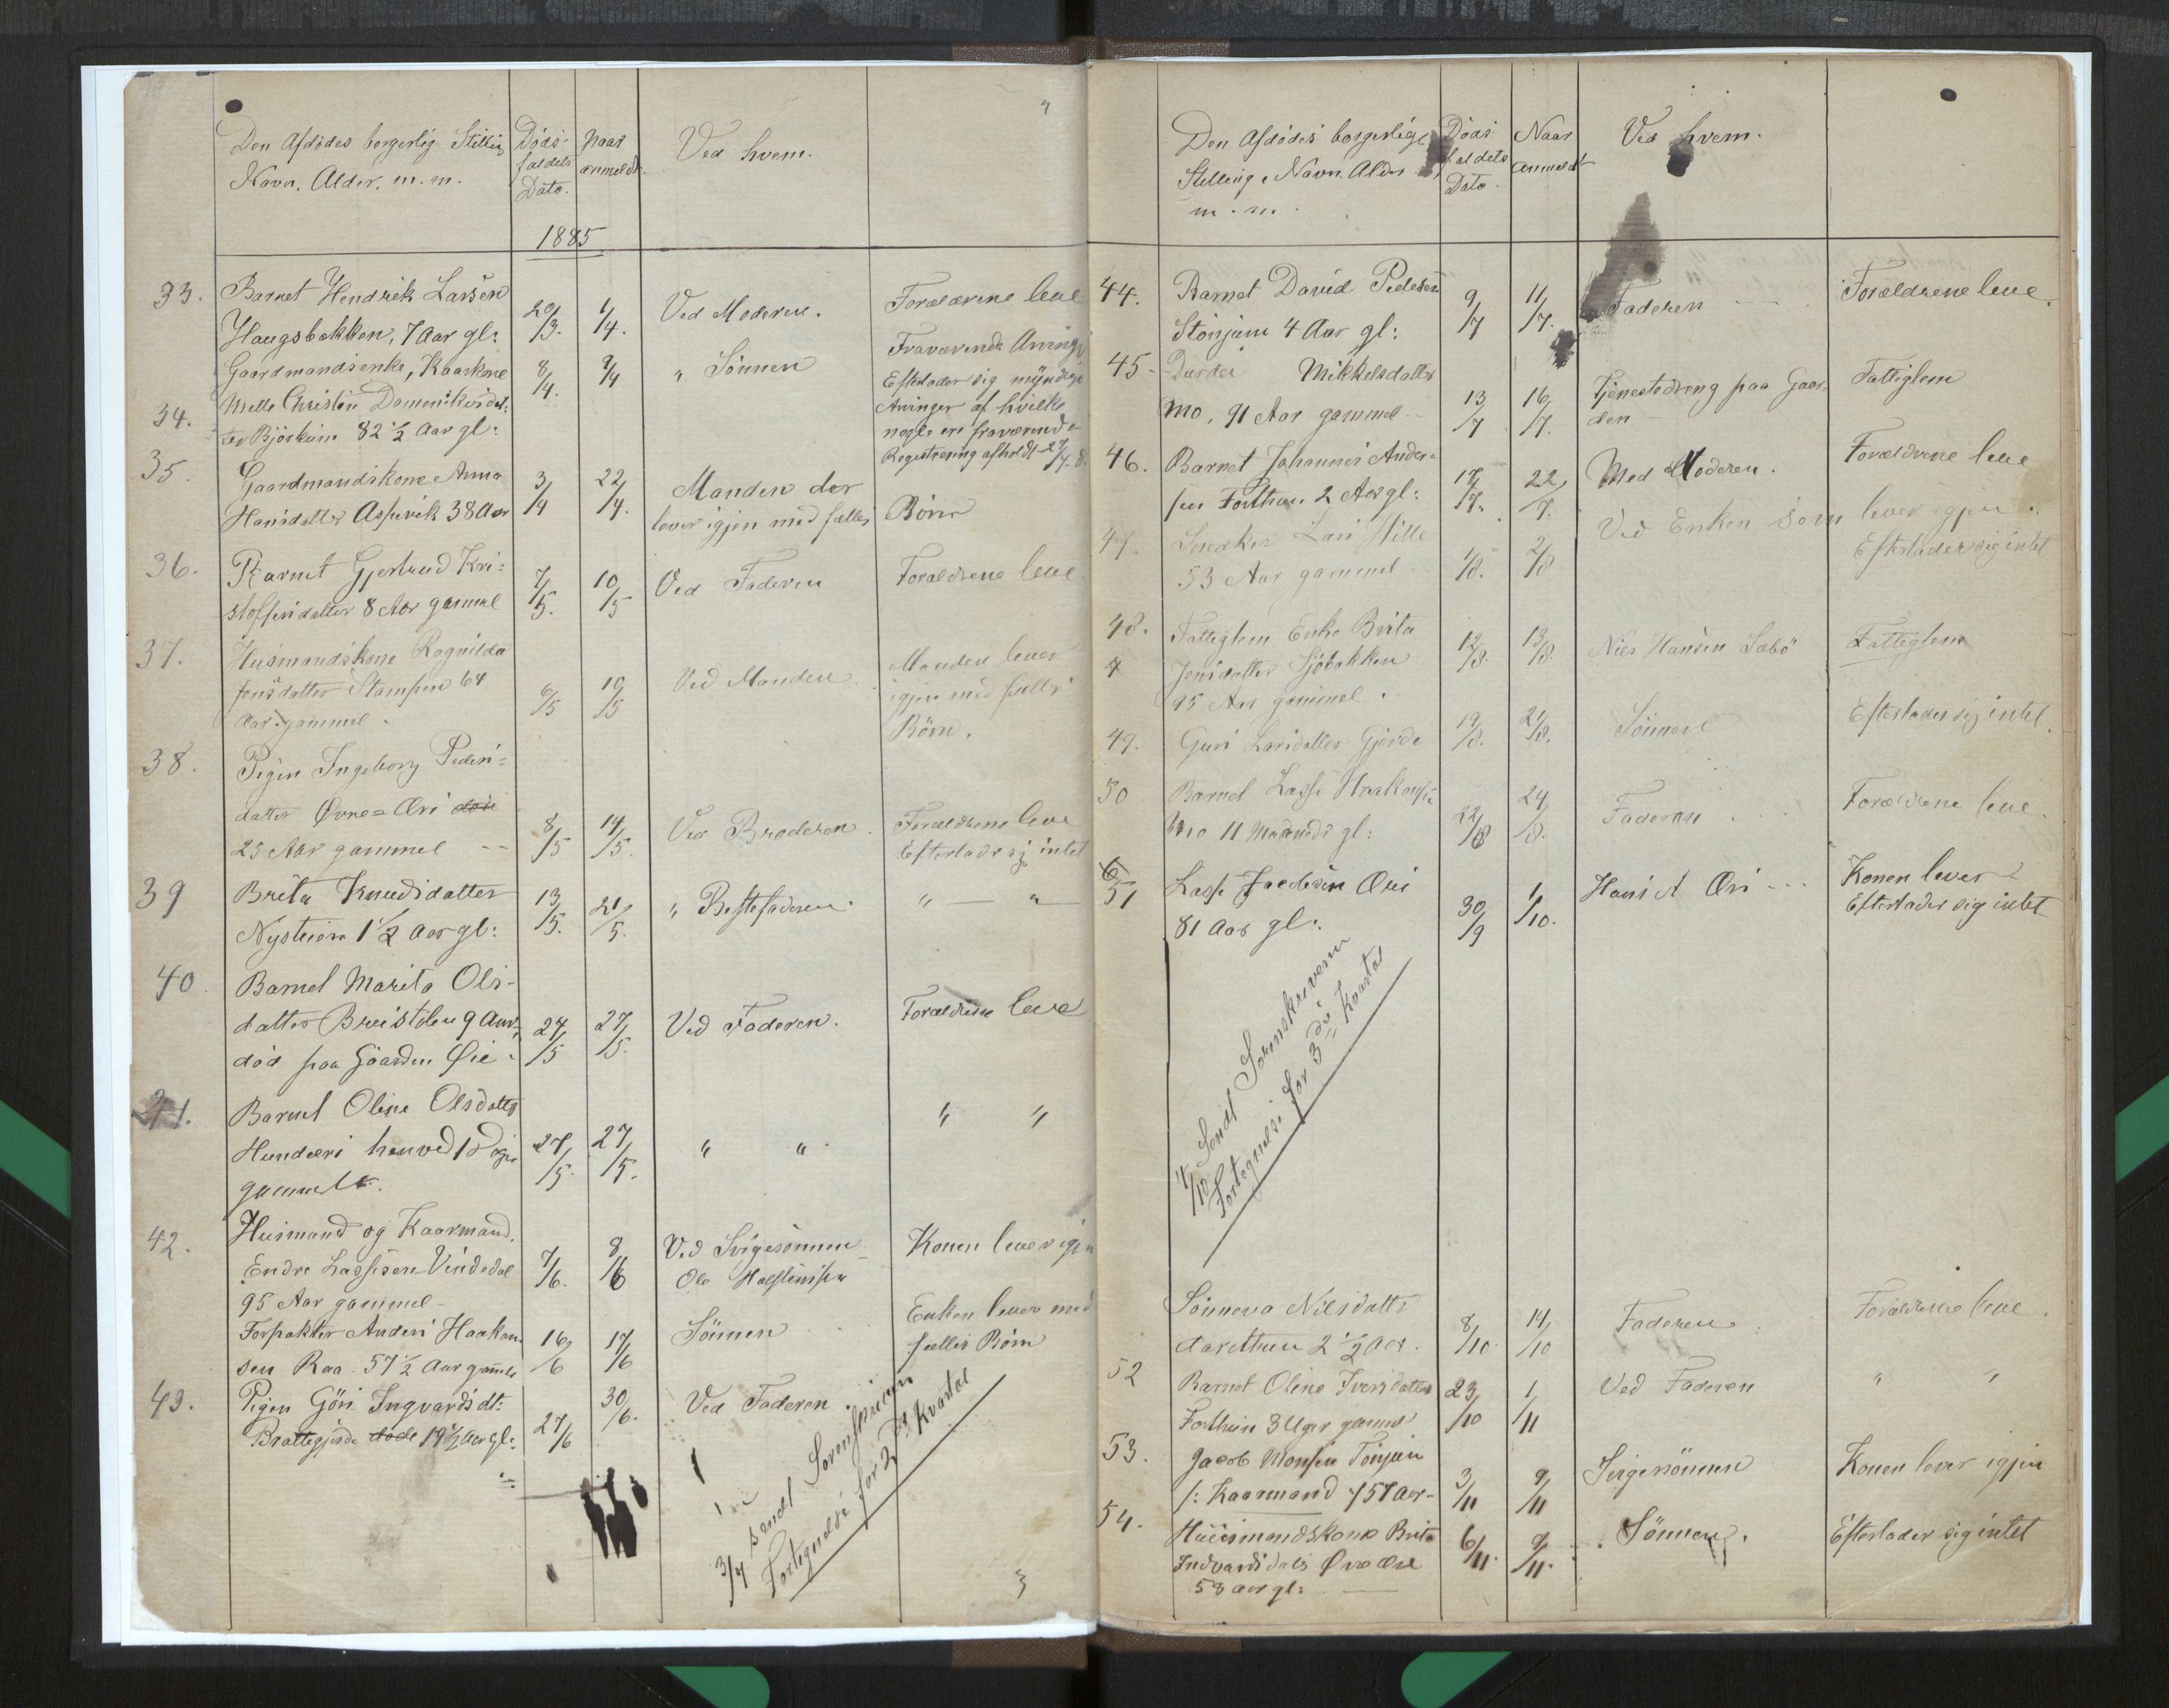 Den Afdødes borgerlig Stilling
Navn, Alder. m. m.
Døds-
faldets
Dato.
Naar
anmeldt.
Ved hvem.
1885
33. Barnet Hendrik Larsen
Haugsbakken, 7 Aar gl: 29/3. 1/4. Ved Moderen. Forældrene leve
Fraværende Arvinger
Gaardmandsenke, Kaarkone 8/4. 9/4 " Sønnen Efterlader sig myndige
34. Mette Christin Domenikusdat: Arvinger af hvilke
ter Bjørkum 82 1/2 Aar gl: nogle ere fraværende
Registrering afholdt 27/4
35. Gaardmandskone Anna 3/4 22/4. Manden der
Hansdatter Aspevik 38 Aar lever igjen med fælles Børn
36. Barnet Gjertrud Kri=
stoffersdatter 8 Aar gammel 7/5. 10/5 Ved Faderen Forældrene leve
37. Husmandskone Ragnilda Manden lever
Jensdatter Stampen 64 6/5 10/5 Ved Manden. igjen med fælles
Aar gammel. Børn.
38. Pigen Ingeborg Peders=
datter Øvre=Æri døde
23 Aar gammel 8/5 14/5. Ved Broderen. Forældrene leve
Efterlader sig intet
39 Brita Knudsdatter 13/5. 21/5. " Bestefaderen. " — "
Nysteien 1 1/2 Aar gl:
40. Barnet Marita Ols-
datter Breistølen 9 Aar, 24/5 27/5. Ved Faderen. Forældrene leve
død paa Gaarden Øie.
41. Barnet Oline Olsdatter " "
Hunderi henved 1 Døgn 27/5. 27/5. " "
gammelt.
42. Husmand og Kaarmand.
Endre Lassesen Vindedal 7/6. 8/6 Ved Svigesønnen Konen lever igjen
95 Aar gammel Ole Halstensen
Forpakter Anders Haakon 16/6 17/6 Sønnen Enken lever med
sen Raa 57 1/2 Aar gammel fælles Børn
43. Pigen Göri Ingvardsdt: 27/6 30/6. Ved Faderen.
Brattegjerde døde 19 1/2 Aar gl:
3/7 sendt Sorenskriveren
Fortegnelse for 2det Kvartal
3
Den Afdødes borgerlige
Stilling, Navn, Alder
m. m.
Døds
faldets
Dato.
Naar
anmeldt
Ved hvem.
44. Barnet David Pedersen 9/7 11/7. Faderen Forældrene leve.
Stönjum 4 Aar gl:
45. Mikkelsdatter
Mo, 91 Aar gammel 13/7 16/7. Tjenestedreng paa Gaar
den Fattiglem
46. Barnet Johannes Ander=
sen Forthun 2 Aar gl: 17/7. 22/7. Med Moderen. Forældrene leve
47. Snedker Lars Hille Ved Enken som lever igjen.
53 Aar gammel 1/8. 2/8 Efterlader sig intet
48. Fattiglem Enke Brita
Jensdatter Sjøbakken 12/8. 13/8. Nils Hansen Sæbö Fattiglem
95 Aar gammel.
49. Guri Larsdatter Gjerde 19/8. 21/8. Sønnen Efterlader sig intet.
50 Barnet Lasse Haakonsen
Mo 11 Maaneder gl: 22/8 24/8. Faderen Forældrene leve.
51 Lasse Œri 30/9 1/10. Hans A Œri Konen lever
81 Aar gl: Efterlader sig intet
4/10 Sendt Sorenskriveren
Fortegnelse for 3die Kvartal
Sönneva Nilsdatter
2 1/2 Aar. 8/10 14/10 Faderen. Forældrene leve.
52 Barnet Oline Iversdatter 23/10 1/11 Ved Faderen " "
Forthun 3 Uger gammel
53. Jacob Monsen Tönjum
/: Kaarmand :/ 57 Aar- 3/11 9/11 Svigersönnen Konen lever igjen
54. Huusmandskone Brita 6/11. 9/11. Sönnen. Efterlader sig intet
Indvardsdatr Øvre Œri
58 Aar gl: